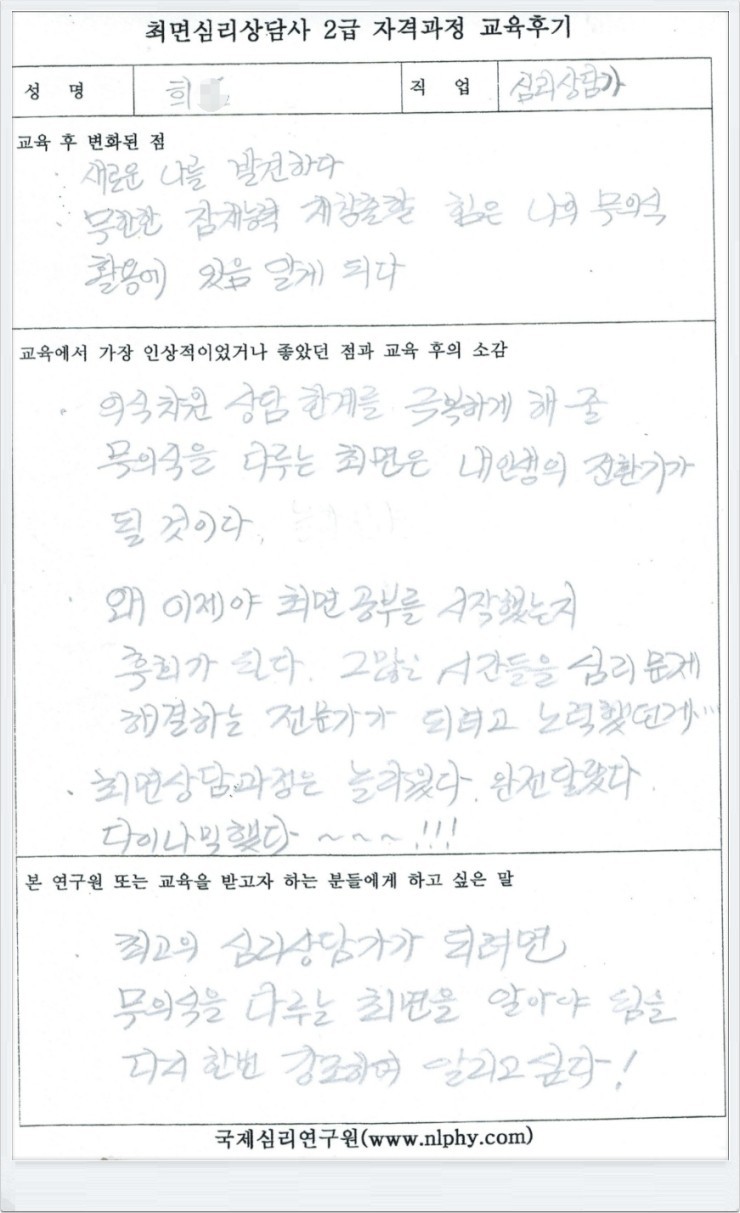 최면심리상담사 2급 자격과정 교육후기
성 명 희 직 업 심리상담가
교육 후 변화된 점
· 새로운 나를 발견하다
· 무한한 잠재능력 재창출할 힘은 나의 무의식
활용에 있음 알게 되다
교육에서 가장 인상적이었거나 좋았던 점과 교육 후의 소감
· 의식차원 상담 한계를 극복하게 해 줄
무의식을 다루는 최면은 내인생의 전환기가
될 것이다.
· 왜 이제야 최면공부를 시작했는지
후회가 된다. 그많은 시간들을 심리문제
해결하는 전문가가 되려고 노력했던가…
· 최면상담과정은 놀라웠다. 완전달랐다.
다이나믹했다 ~ ~ ~ !!!
본 연구원 또는 교육을 받고자 하는 분들에게 하고 싶은 말
· 최고의 심리상담가가 되려면
무의식을 다루는 최면을 알아야 됨을
다시 한번 강조하여 알리고 싶다!
국제심리연구원(www.nlphy.com)